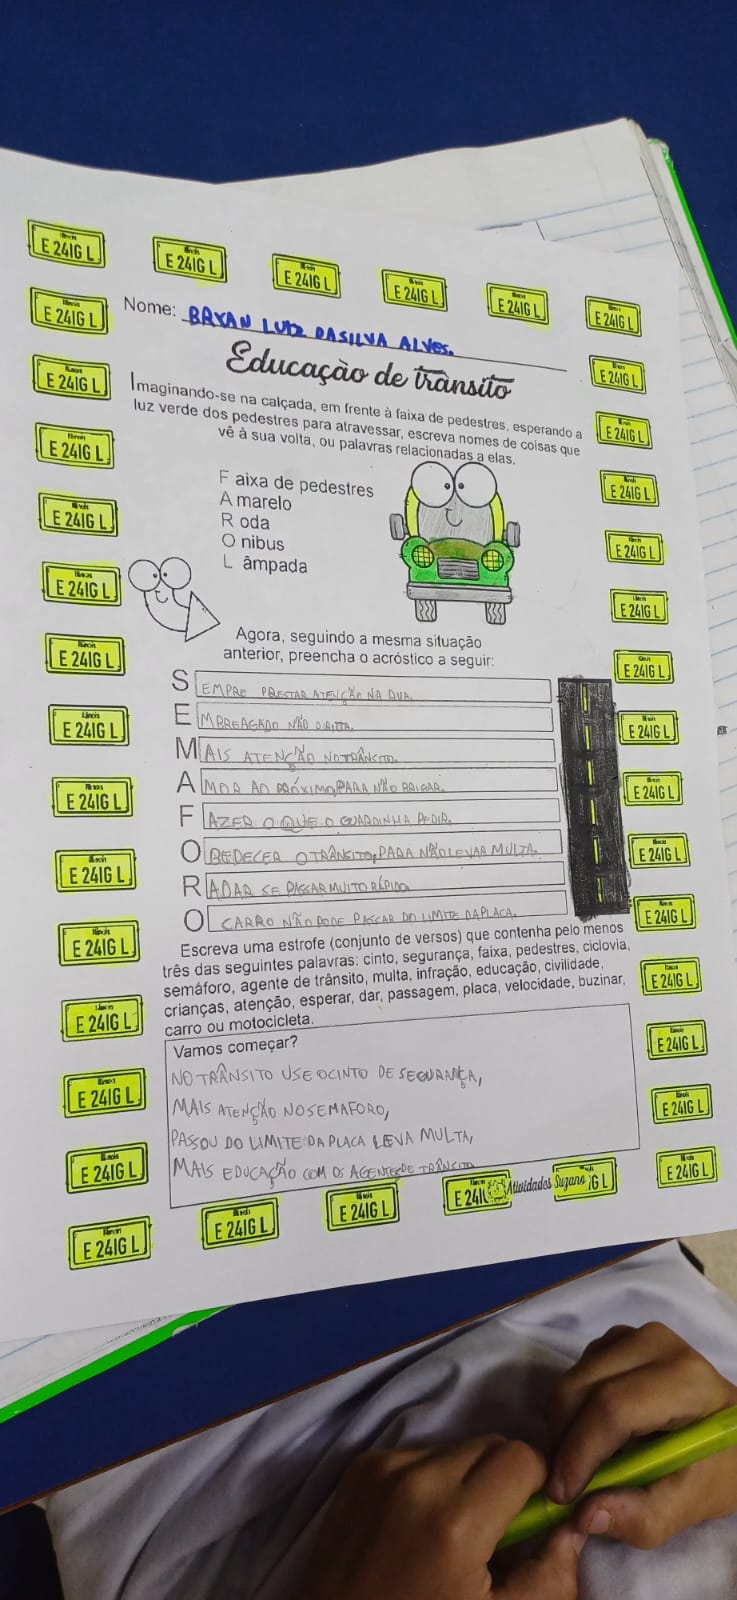 Illinois E 24IG L
Illinois E 24IG L
Illinois E 24IG L
Illinois E 24IG L
Illinois E 24IG L
Illinois E 24IG L
Nome: BRYAN LUIZ DA SILVA ALVES.
Educação de trânsito
Imaginando-se na calçada, em frente à faixa de pedestres, esperando a
luz verde dos pedestres para atravessar, escreva nomes de coisas que
vê à sua volta, ou palavras relacionadas a elas.
F aixa de pedestres
A marelo
R oda
O nibus
L âmpada
Agora, seguindo a mesma situação
anterior, preencha o acróstico a seguir:
S EMPRE PRESTAR ATENÇÃO NA RUA.
E MBREAGADO NÃO DIRITA.
M AIS ATENÇÃO NO TRÂNSITO.
A MOR AO PRÓXIMO, PARA NÃO BRIGAR.
F AZER O QUE O GUARDINHA PEDIR.
O BEDECER O TRÂNSITO, PARA NÃO LEVAR MULTA.
R ADAR SE PASSAR MUITO RÁPIDO.
O CARRO NÃO PODE PASSAR DO LIMITE DA PLACA.
Escreva uma estrofe (conjunto de versos) que contenha pelo menos
três das seguintes palavras: cinto, segurança, faixa, pedestres, ciclovia,
semáforo, agente de trânsito, multa, infração, educação, civilidade,
crianças, atenção, esperar, dar, passagem, placa, velocidade, buzinar,
carro ou motocicleta.
Vamos começar?
NO TRÂNSITO USE O CINTO DE SEGURANÇA,
MAIS ATENÇÃO NO SEMAFORO,
PASSOU DO LIMITE DA PLACA LEVA MULTA,
MAIS EDUCAÇÃO COM OS AGENTES DE TRÂNSITO
Atividades Suzano